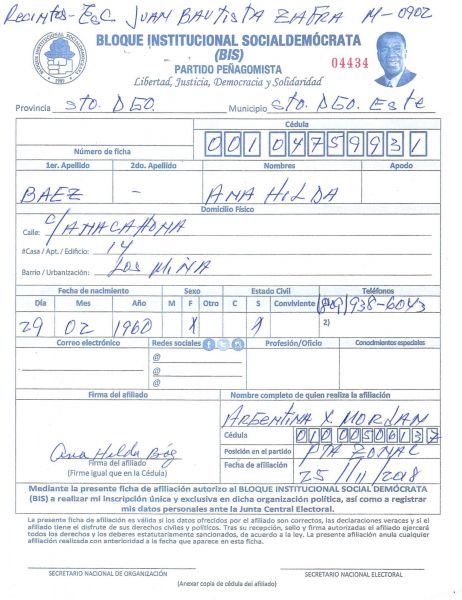 Recintos- Esc Juan Bautista Zafra M-0902
BLOQUE INSTITUCIONAL SOCIALDEMÓCRATA
(BIS)
04434
PARTIDO PEÑAGOMISTA
Libertad, Justicia, Democracia y Solidaridad
Provincia Sto. DGO. Municipio Sto. DGO. Este
Cédula
Número de ficha 001 0475993 1
1er. Apellido 2do. Apellido Nombres Apodo
BAEZ - ANA HILDA
Domicilio Físico
Calle: C/ANACAHONA
#Casa / Apt. / Edificio: 14
Barrio / Urbanización: Los MINA
Fecha de nacimiento Sexo Estado Civil Teléfonos
Día Mes Año M F Otro C S Conviviente (809) 938-6043
29 02 1960 X X 2)
Correo electrónico Redes sociales Profesión/Oficio Conocimientos especiales
@
@
@
Firma del afiliado Nombre completo de quien realiza la afiliación
ARGENTINA X. MORDAN
Cédula
010 0050613 7
Ana Hilda Báez
Posición en el partido PTA ZONAL
Firma del afiliado
(Firme igual que en la Cédula)
Fecha de afiliación 25/11/2018
Mediante la presente ficha de afiliación autorizo al BLOQUE INSTITUCIONAL SOCIAL DEMÓCRATA
(BIS) a realizar mi inscripción única y exclusiva en dicha organización política, así como a registrar
mis datos personales ante la Junta Central Electoral.
La presente ficha de afiliación es válida si los datos ofrecidos por el afiliado son correctos, las declaraciones veraces y si el
afiliado tiene el disfrute de sus derechos civiles y políticos. Tras su recepción, sello y firma autorizadas el afiliado ejercerá
todos los derechos y los deberes estatutariamente sancionados, de acuerdo a la ley. La presente afiliación anula cualquier
afiliación realizada con anterioridad a la fecha que aparece en esta ficha.
SECRETARIO NACIONAL DE ORGANIZACIÓN SECRETARIO NACIONAL ELECTORAL
(Anexar copia de cédula del afiliado)